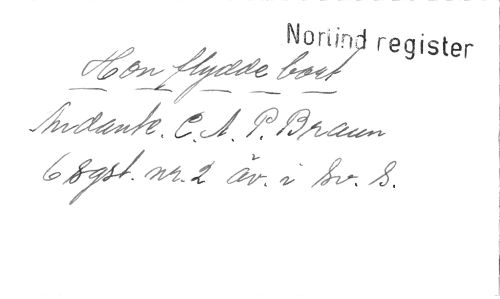 Norlind register
Hon flydde bort
Andante. C. A. P. Braun
6 sgst. nr. 2 äv. i Sv. S.